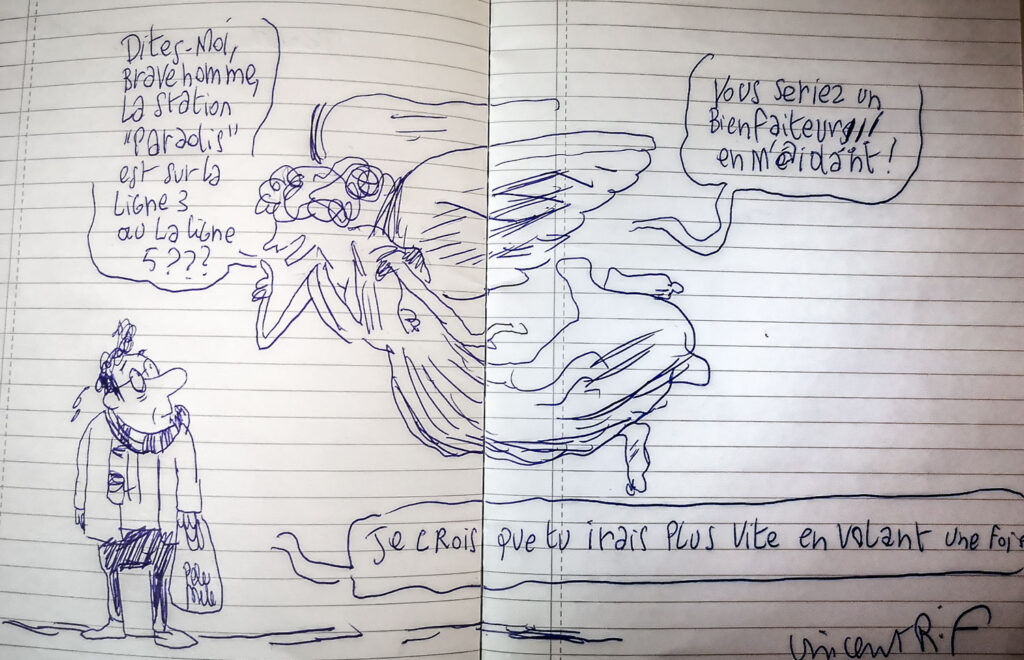 Dites-Moi,
Brave homme,
La station
"Paradis"
est sur la
Ligne 3
ou La ligne
5???
Vous seriez un
Bienfaiteur
en M'aidant!
Je crois que tu irais Plus Vite en volant une fois
Pêle
Mêle
Vincent R.F